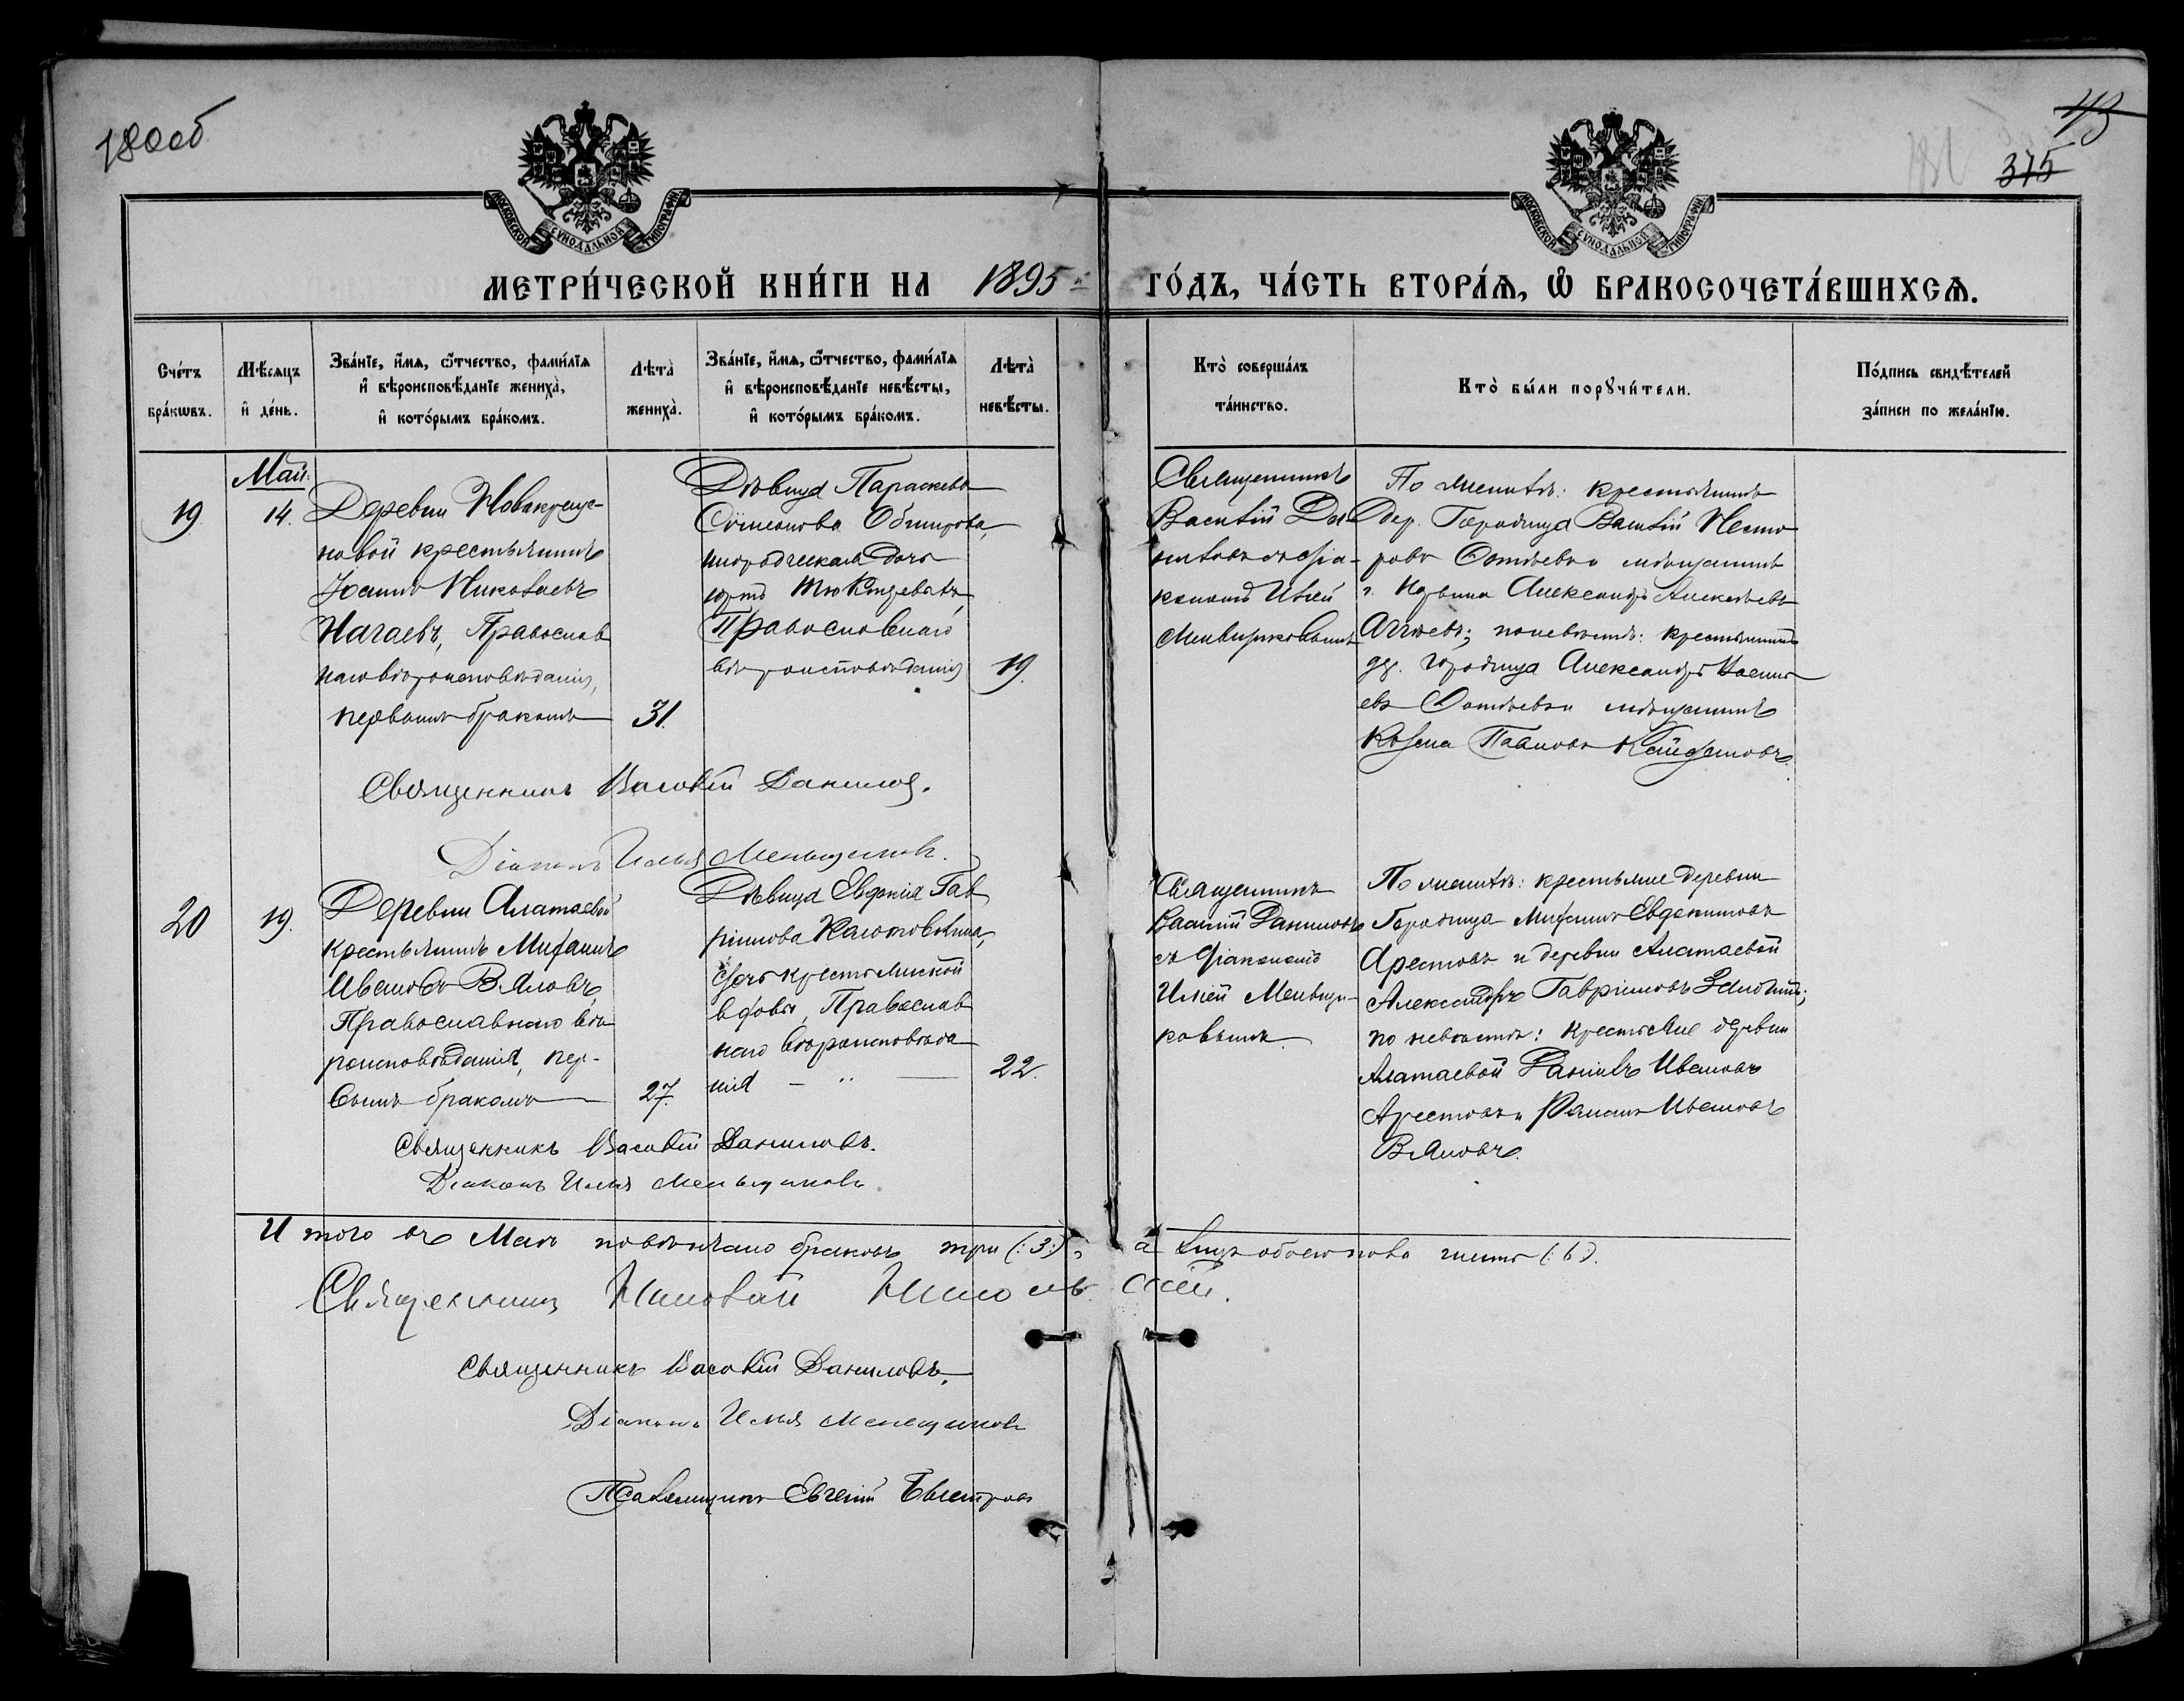 180об
43
375
МОСКОВСКОЙ СѴНОДАЛЬНОЙ ТИПОГРАФІИ
МОСКОВСКОЙ СѴНОДАЛЬНОЙ ТИПОГРАФІИ
МЕТРИ́ЧЕСКОЙ КНИ́ГИ НА 1895 ГО́ДЪ, ЧА́СТЬ ВТОРА́Ѧ, Ѽ БРАКОСОЧЕТА́ВШИХСѦ.
Сче́тъ бра́кѡвъ.
Мѣ́сѧцъ и҆ де́нь.
Зва́нїе, и҆́мѧ, ѻ҆́тчество, фами́лїѧ
и҆ вѣроисповѣ́данїе жениха̀,
и҆ кото́рымъ бра́комъ.
Лѣта̀ жениха̀.
Зва́нїе, и҆́мѧ, ѻ҆́тчество, фами́лїѧ
и҆ вѣроисповѣ́данїе невѣ́сты,
и҆ кото́рымъ бра́комъ.
Лѣта̀ невѣ́сты.
Кто̀ соверша́лъ
та́инство.
Кто̀ бы́ли порꙋчи́тели.
По́дпись свидѣ́телей
за́писи по жела́нїю.
Май:
19
14.
Деревни Новокреще-
новой крестьянинъ
Іоаннъ Николаевъ
Нагаевъ, Православ
наго вѣроисповѣданія,
первымъ бракомъ
31.
Дѣвица Параскева
Сѵмеонова
инородческая дочь
Православнаго
вѣроисповѣданія
19.
Священникъ
Василій Да-
ниловъ съ діа-
кономъ Иліей
Меньщиковымъ
По женихѣ: крестьянинъ
дер. Городища Василій Несто
ровъ Сотьевъ и мѣщанинъ
г. Нарыма Александръ Алексѣевъ
по невѣстѣ: крестьянинъ
дер. Городища Александръ Васильевъ
евъ Сотьевъ и мѣщанинъ
Козма Павловъ Кайдаловъ.
Священникъ Василій Данилов.
Діаконъ Илья Меньщиковъ.
20
19.
Деревни Алатаевой
крестьянинъ Михаилъ
Ивановъ Вяловъ,
Православнаго вѣ
роисповѣданія, пер-
вымъ бракомъ
27.
Дѣвица Евдокія Гав
ріилова
дочь крестьянской
вдовы, Православ
наго вѣроисповѣда
нія — " —
22.
Священникъ
Василій Даниловъ
съ діакономъ
Иліей Меньщи-
ковымъ
По женихѣ: крестьяне деревни
Городища Михаилъ Евдокимовъ
Арестовъ и деревни Алатаевой
Александръ Гавріиловъ
по невѣстѣ: крестьяне деревни
Алатаевой Даніилъ Ивановъ
Арестовъ и Романъ Ивановъ
Вяловъ.
Священникъ Василій Даниловъ.
Діаконъ Илья Меньщиковъ.
Итого въ Маѣ повѣнчано браковъ три (:3:), а лицъ обоего пола шесть (:6:).
Священникъ Николай Никольскій.
Священникъ Василій Даниловъ.
Діаконъ Илья Меньщиковъ
Псаломщикъ Евгеній Быстровъ